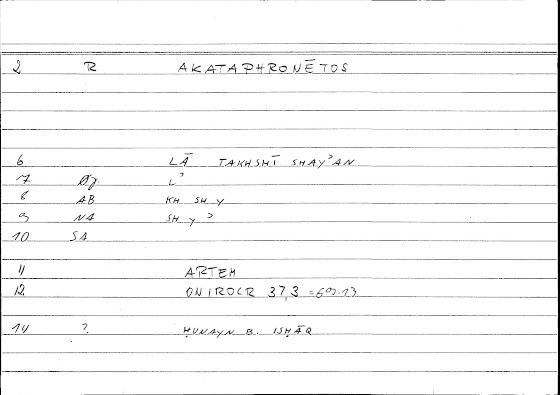 2 R AKATAPHRONĒTOS
6 LĀ TAKHSHĪ SHAYʾAN
7 Lʾ
8 AB KH SH Y
9 NA SH Y ʾ
10 SA
11 ARTEM
12 ONIROCR 37,3
14 ? ḤUNAYN B. ISḤĀQ